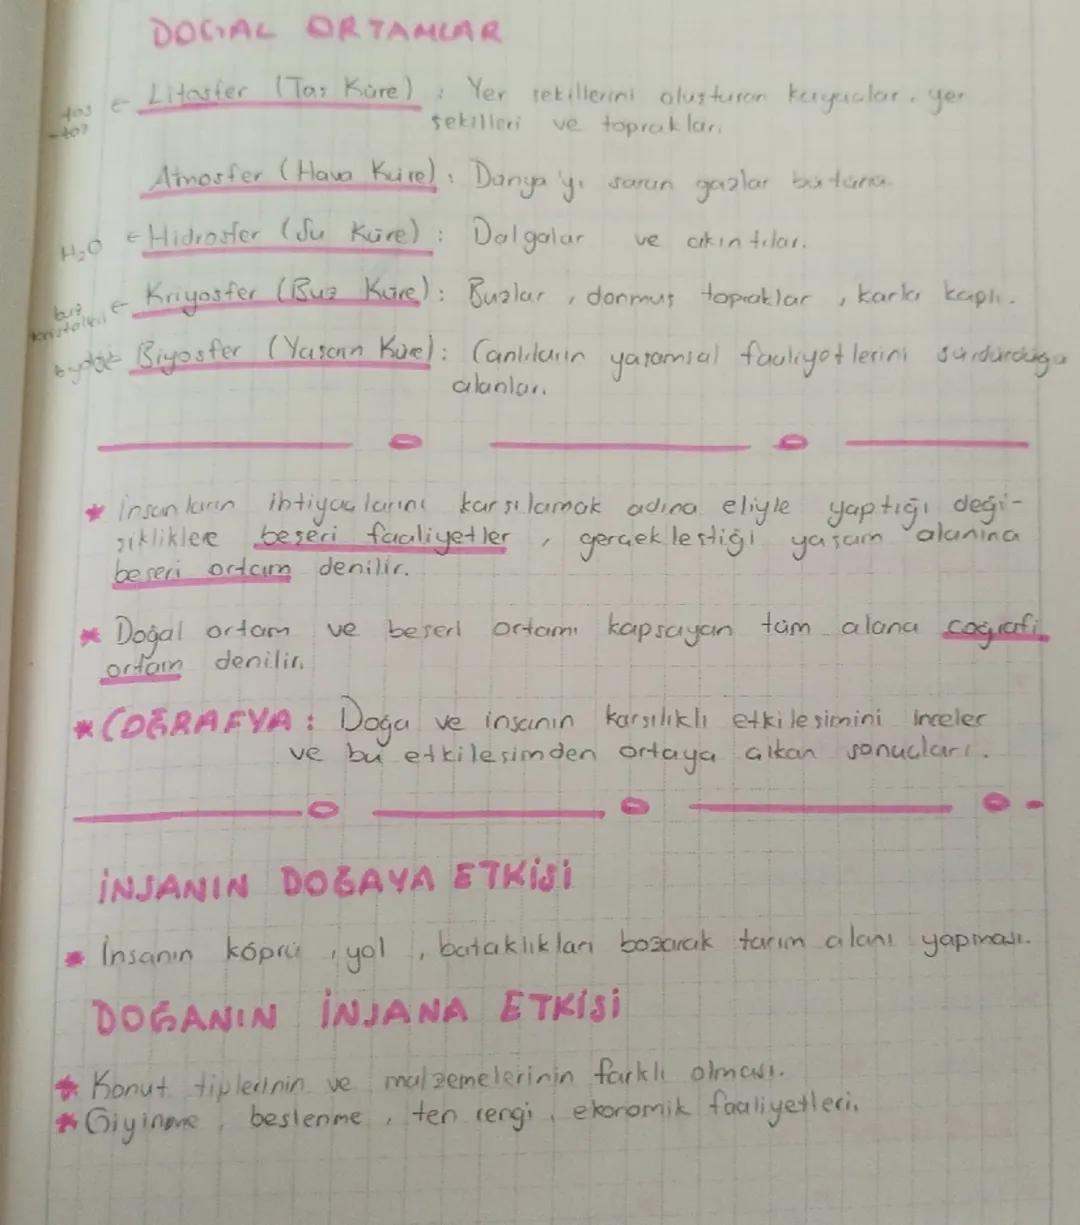 DOĞAL ORTAMLAR
taş ← Litosfer (Taş Küre) : Yer şekillerini oluşturan kayaçlar, yer
şekilleri ve topraklar.
Atmosfer (Hava Küre) : Dünya'yı saran gazlar bütünü.
H₂O ← Hidrosfer (Su Küre) : Dalgalar ve akıntılar.
buz ← Kriyosfer (Buz Küre) : Buzlar, donmuş topraklar, karla kaplı.
kristalleri
Biyosfer (Yaşam Küre) : Canlıların yaşamsal faaliyetlerini sürdürdüğü
alanlar.
* İnsanların ihtiyaçlarını karşılamak adına eliyle yaptığı deği-
şikliklere beşeri faaliyetler, gerçekleştiği yaşam alanına
beşeri ortam denilir.
* Doğal ortam ve beşeri ortamı kapsayan tüm alana coğrafi
ortam denilir.
* COĞRAFYA : Doğa ve insanın karşılıklı etkileşimini inceler
ve bu etkileşimden ortaya çıkan sonuçları.
İNSANIN DOĞAYA ETKİSİ
* İnsanın köprü, yol, bataklıkları bozarak tarım alanı yapması.
DOĞANIN İNSANA ETKİSİ
* Konut tiplerinin ve malzemelerinin farklı olması.
* Giyinme, beslenme, ten rengi, ekonomik faaliyetleri.